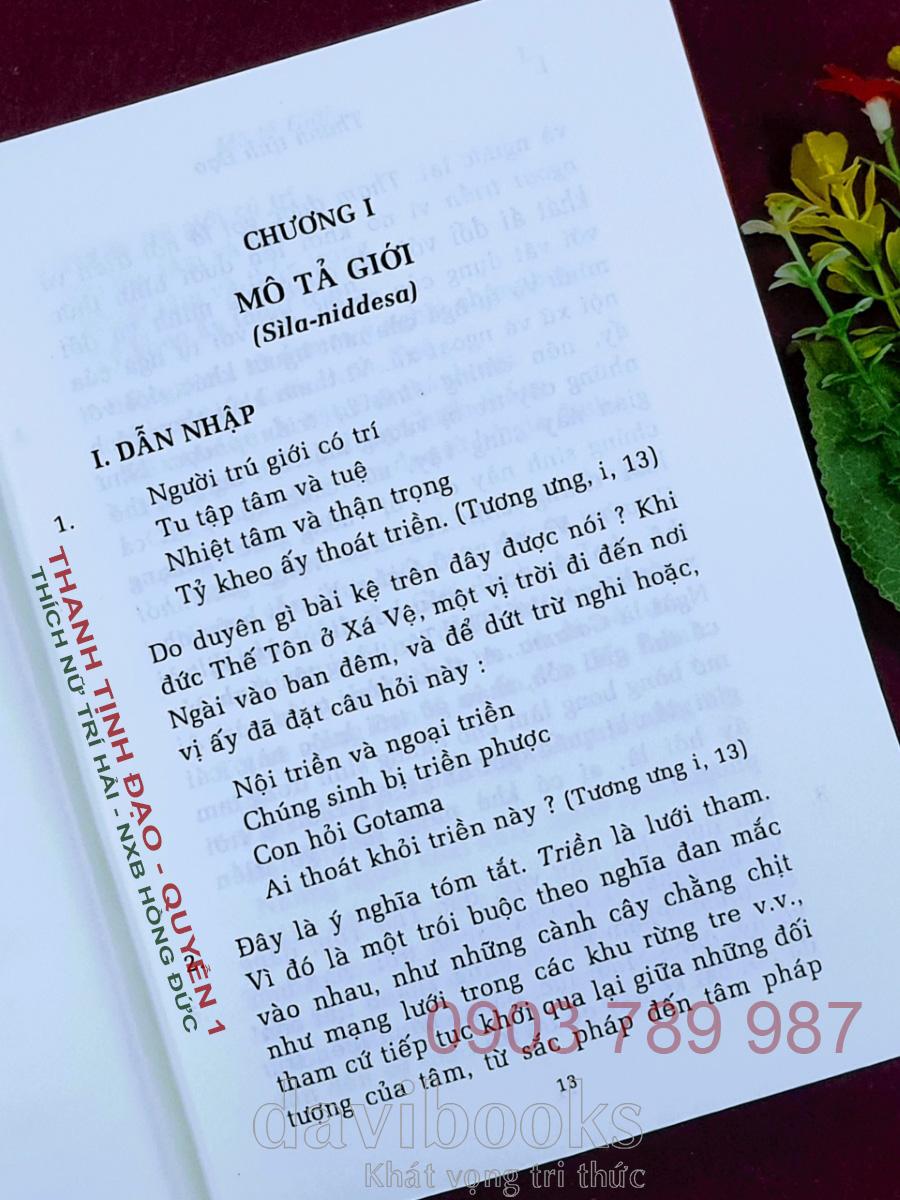 CHƯƠNG I
MÔ TẢ GIỚI
(Sìla-niddesa)
I. DẪN NHẬP
1. Người trú giới có trí
Tu tập tâm và tuệ
Nhiệt tâm và thận trọng
Tỷ kheo ấy thoát triền. (Tương ưng, i, 13)
Do duyên gì bài kệ trên đây được nói ? Khi
đức Thế Tôn ở Xá Vệ, một vị trời đi đến nơi
Ngài vào ban đêm, và để dứt trừ nghi hoặc,
vị ấy đã đặt câu hỏi này :
Nội triền và ngoại triền
Chúng sinh bị triền phược
Con hỏi Gotama
Ai thoát khỏi triền này ? (Tương ưng i, 13)
2. Đây là ý nghĩa tóm tắt. Triền là lưới tham.
Vì đó là một trói buộc theo nghĩa đan mắc
vào nhau, như những cành cây chằng chịt
như mạng lưới trong các khu rừng tre v.v.,
tham cứ tiếp tục khởi qua lại giữa những đối
tượng của tâm, từ sắc pháp đến tâm pháp
13
THANH TỊNH ĐẠO - QUYỂN 1
THÍCH NỮ TRÍ HẢI - NXB HỒNG ĐỨC
0903 789 987
davibooks
Khát vọng tri thức